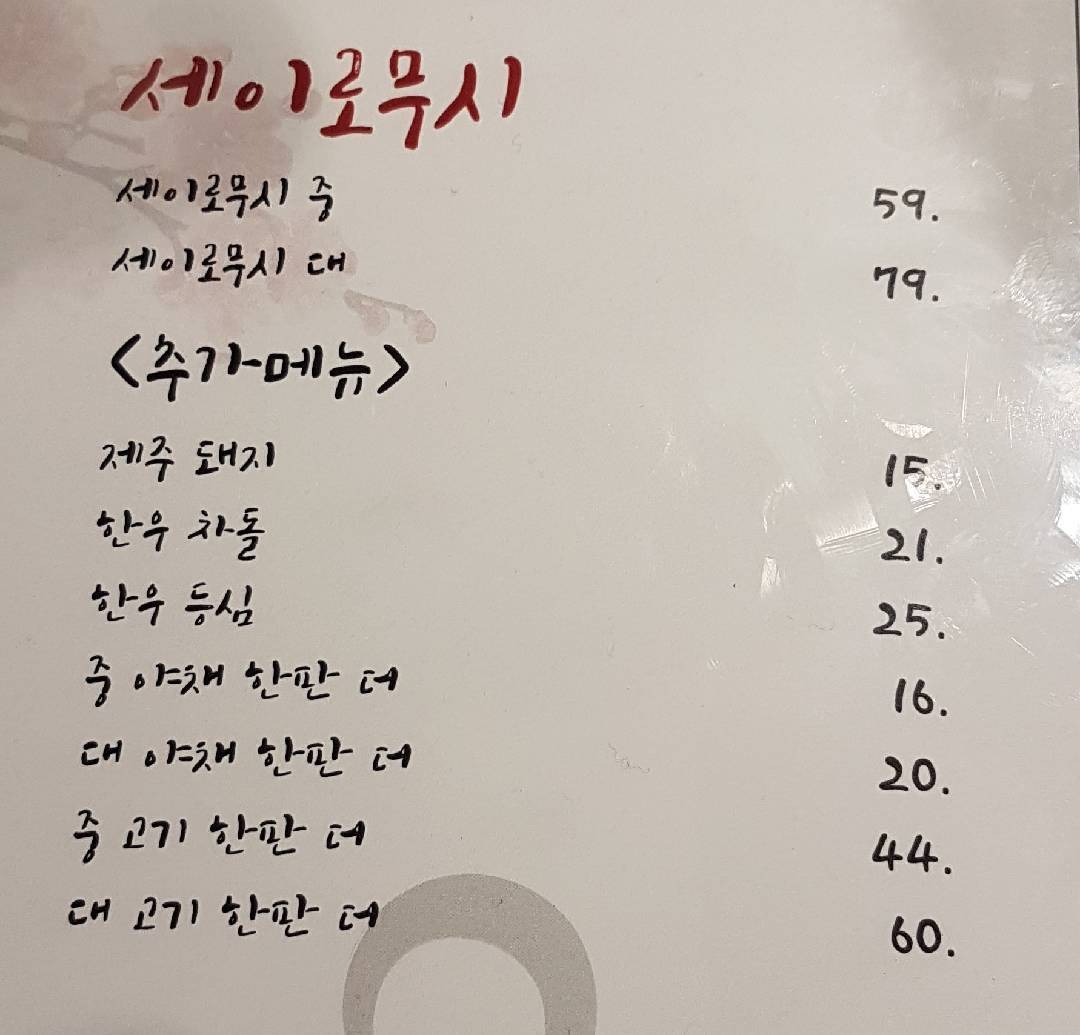 세이로무시
세이로무시 중 59.
세이로무시 대 79.
<추가메뉴>
제주 돼지 15.
한우 차돌 21.
한우 등심 25.
중 야채 한판 더 16.
대 야채 한판 더 20.
중 고기 한판 더 44.
대 고기 한판 더 60.